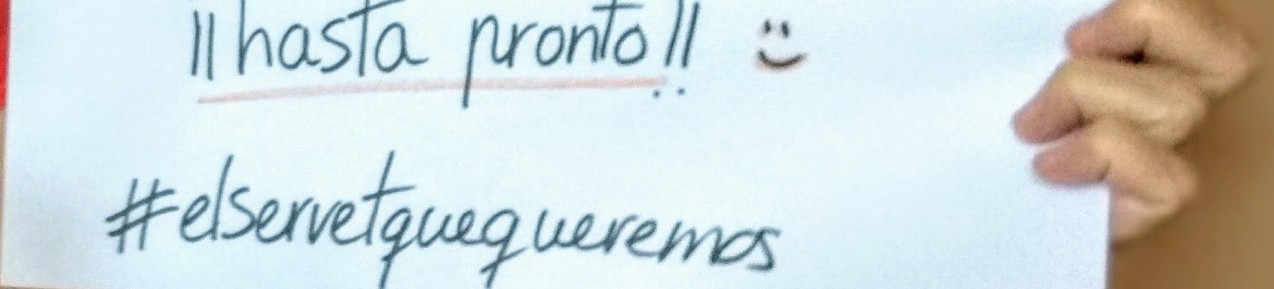 ¡¡hasta pronto!! :)
#elservetquequeremos